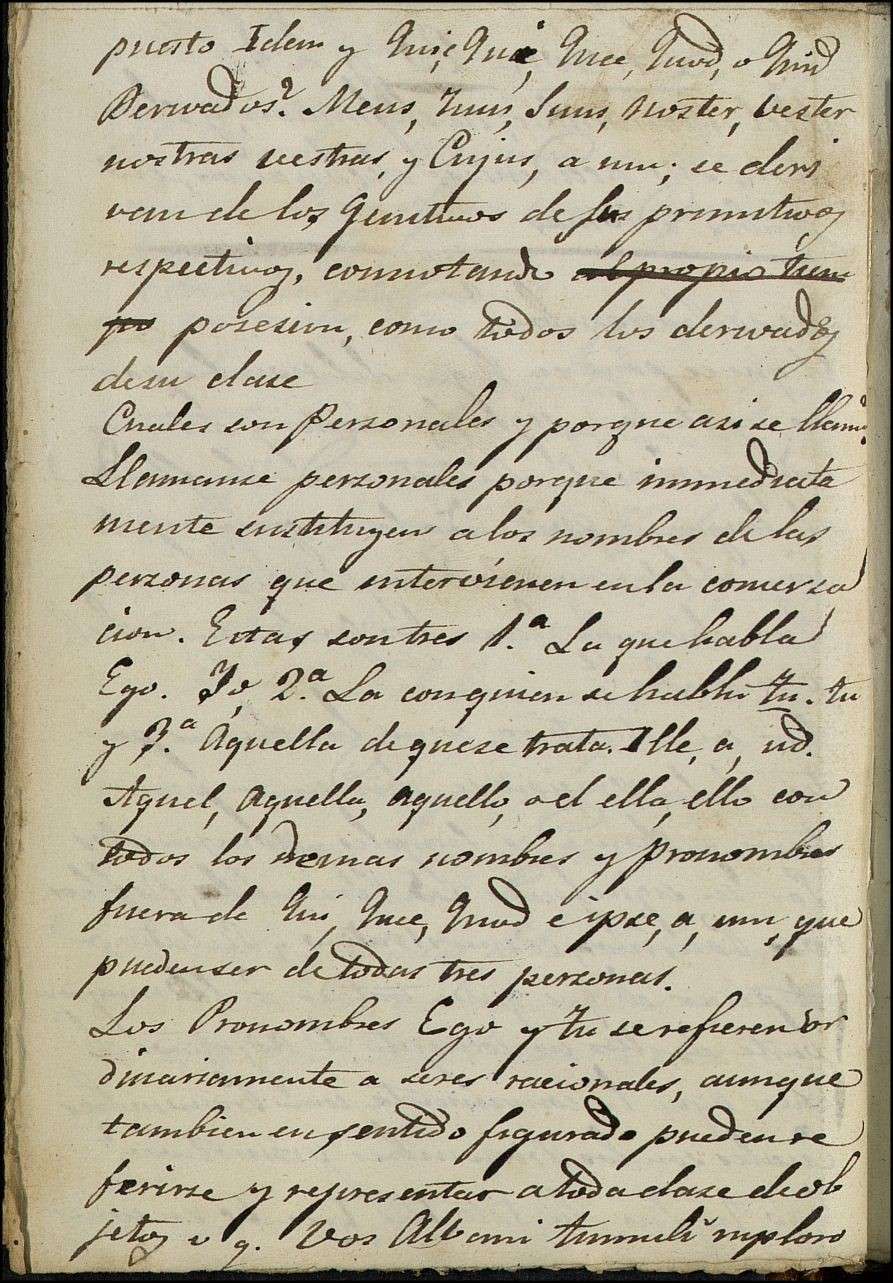 puesto Idem y Quis, Qui, Quae, Quod, o Quid
Derivados? Meus, Tuus, Suus, Noster, Vester
nostras vestras, y Cujus, a um; se deri
van de los Genitivos de sus primitivos
respectivos, connotando al propio tiem
po posesion, como todos los derivados
desu clase
Cuales son Personales y porque asi se llam.n
Llamanse personales porque inmediata
mente sustituyen alos nombres de las
personas que intervienen en la conversa
cion. Estas son tres 1.ª La que habla
Ego. Yo, 2.ª La conquien se habla tu. tu
y 3.ª Aquella de quese trata. Ille, a, ud.
Aquel, aquella, aquello, o el ella, ello con
todos los demas nombres y pronombres
fuera de Qui, Quae, Quod e ipse, a, um, que
pueden ser de todas tres personas.
Los Pronombres Ego y tu se refieren or
dinariamente a seres racionales, aunque
tambien en sentido figurado pueden re
ferirse y representar a toda clase de ob
jetos v g. Vos Albani tumuli imploro